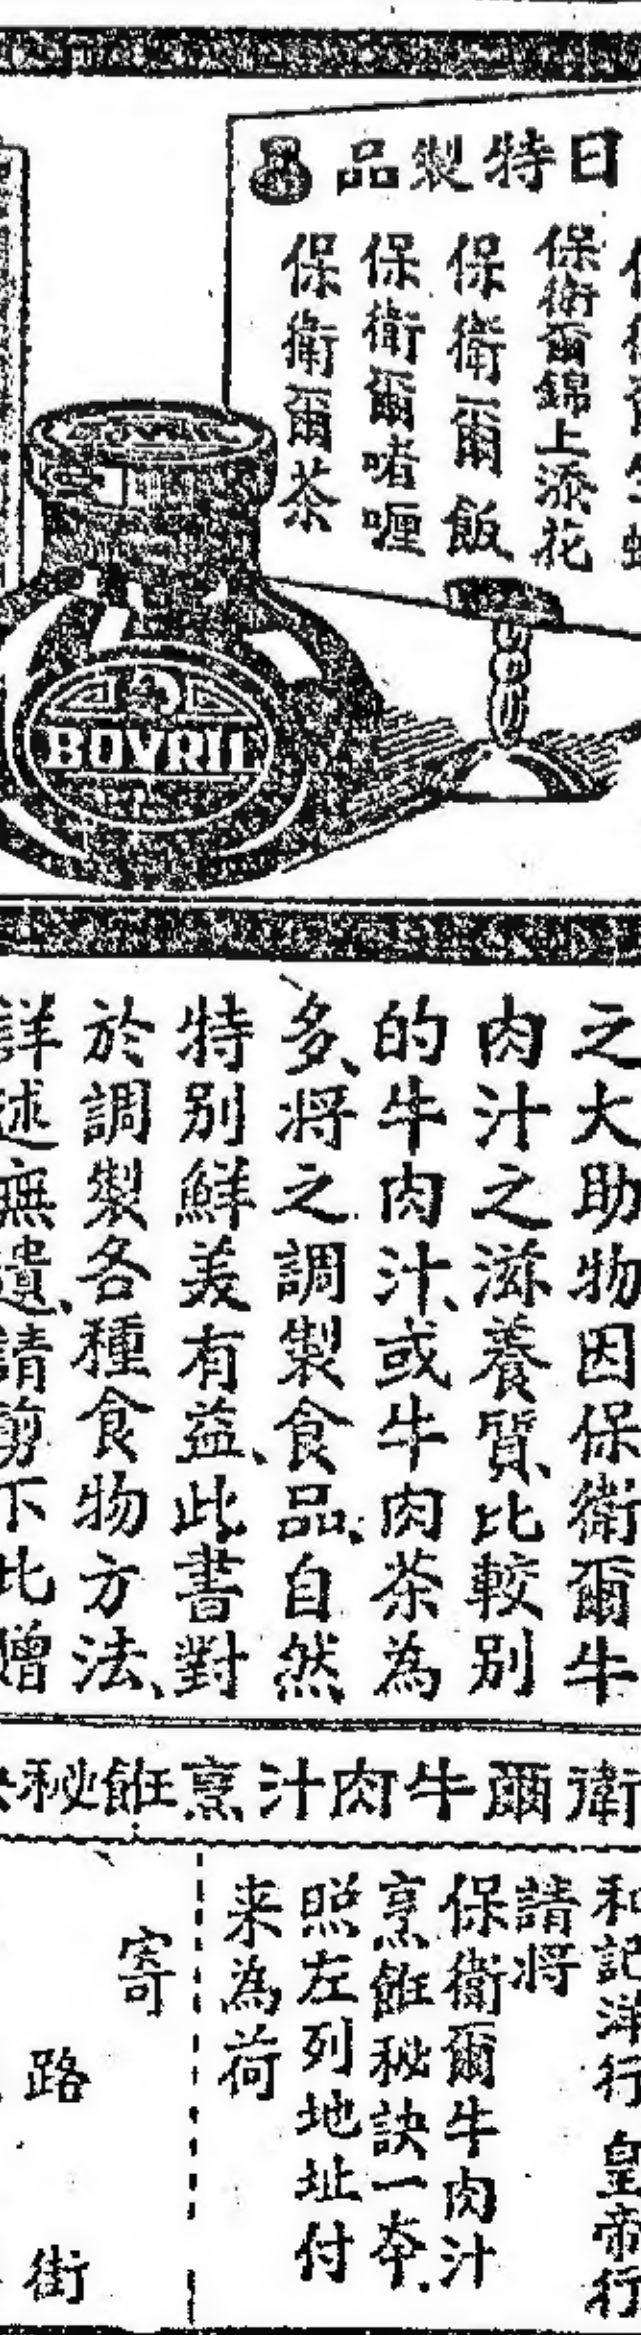 日特製品
保衛爾錦上添花
保衛爾飯
保衛爾啫喱
保衛爾茶
BOVRIL
之大助物因保衛爾牛
肉汁之滋養質、比較別
的牛肉汁、或牛肉茶為
多、將之調製食品、自然
特別鮮美有益、此書對
於調製各種食物方法、
詳述無遺、請剪下此贈
衛爾牛肉汁烹飪秘
和記洋行 皇帝行
請將
保衛爾牛肉汁
烹飪秘訣一夲、
照左列地址付
来為荷
寄
路
街